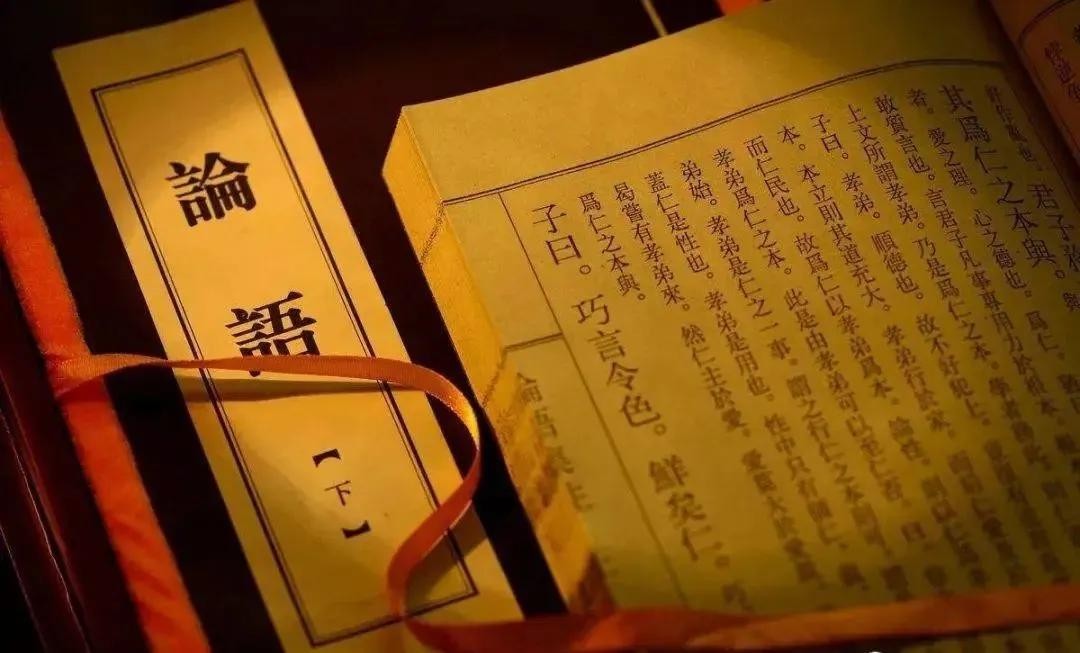 君子務
其爲仁之本與。
者。愛之理。心之德也。爲仁。
敢質言也。言君子凡事專用力於根本。
上文所謂孝弟。乃是爲仁之本。學者務此。則仁
子曰。孝弟。順德也。故不好犯上。豈
本。本立則其道充大。孝弟行於家。
而仁民也。故爲仁以孝弟爲本。論性。則以仁爲
孝弟爲仁之本。此是由孝弟可以至仁否。曰
弟始。孝弟是仁之一事。謂之行仁之本則可。
蓋仁是性也。孝弟是用也。性中只有箇仁。義
曷嘗有孝弟來。然仁主於愛。愛莫大於愛親
爲仁之本與。
子曰。巧言令色。鮮矣仁。巧
論語集注
論語
【下】